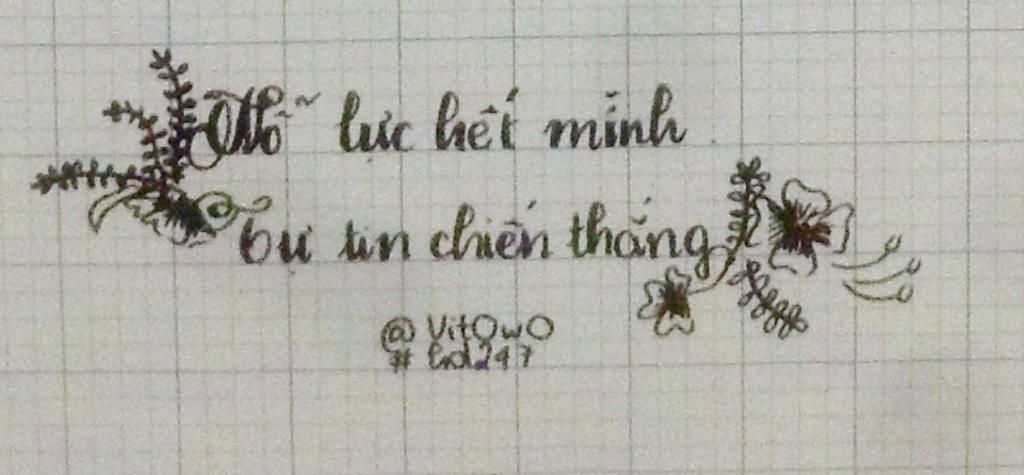 Nỗ lực hết mình
tự tin chiến thắng
@ VitOwO